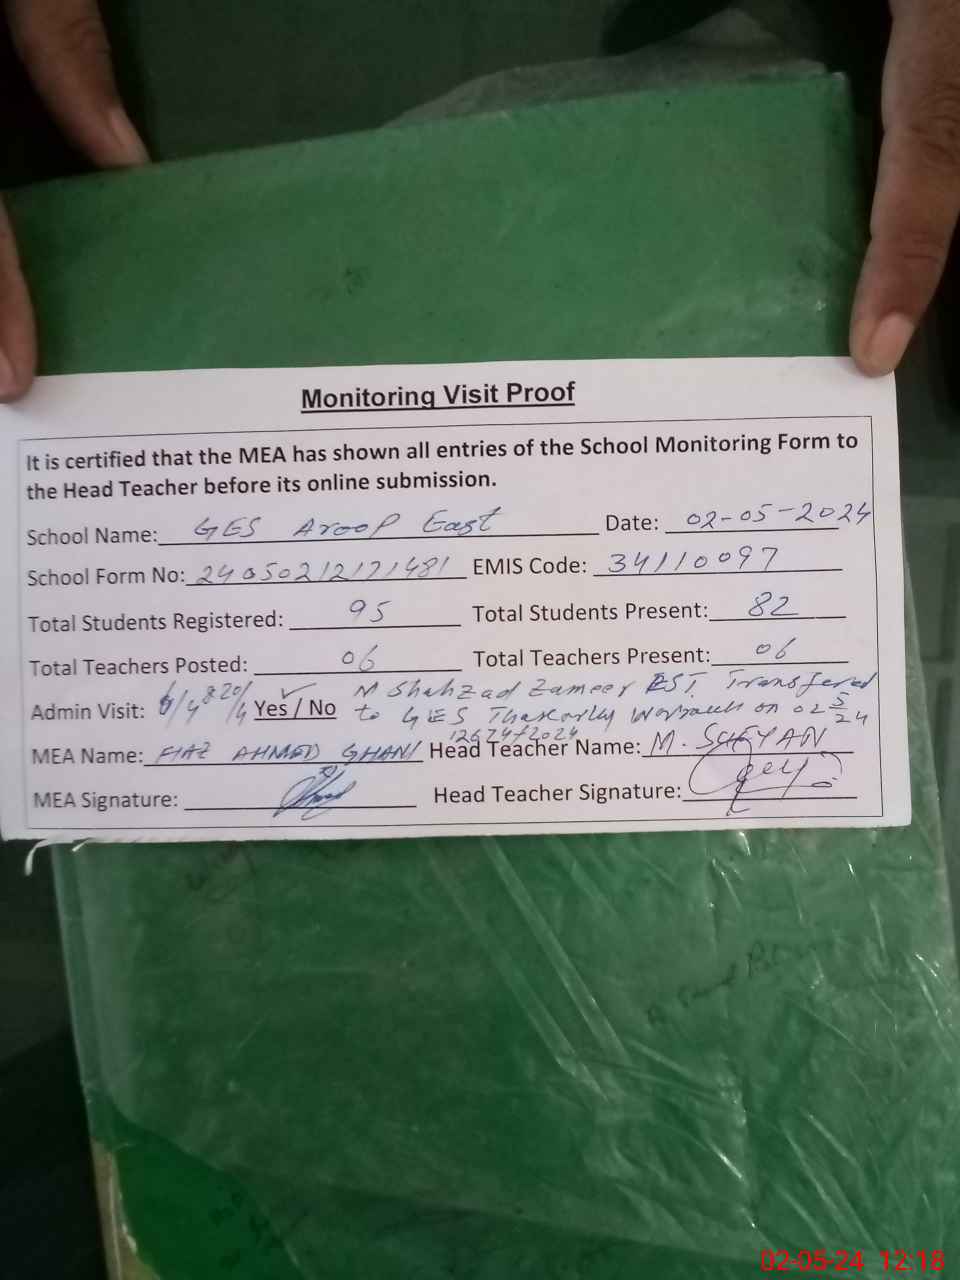 Monitoring Visit Proof
It is certified that the MEA has shown all entries of the School Monitoring Form to
the Head Teacher before its online submission.
School Name: GES Aroop East Date: 02-05-2024
School Form No: 24050212171481 EMIS Code: 34110097
Total Students Registered: 95 Total Students Present: 82
Total Teachers Posted: 06 Total Teachers Present: 06
M Shahzad Zameer EST Transfered
Admin Visit: Yes / No to GES on 02 5/24
MEA Name: FIAZ AHMED GHANI Head Teacher Name: M. SUFYAN
MEA Signature: Head Teacher Signature:
02-05-24 12:18